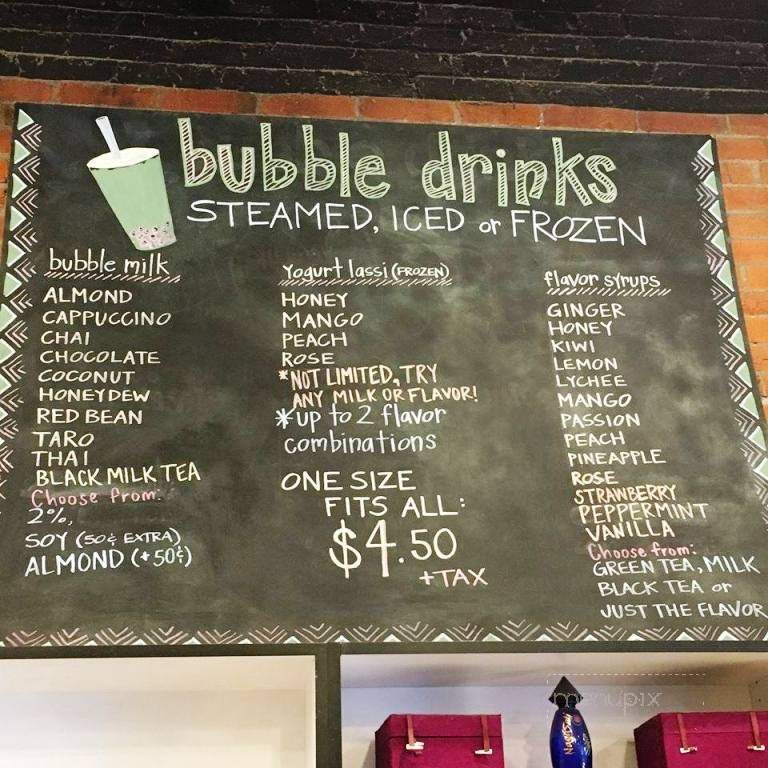 bubble drinks
STEAMED, ICED or FROZEN
bubble milk
ALMOND
CAPPUCCINO
CHAI
CHOCOLATE
COCONUT
HONEYDEW
RED BEAN
TARO
THAI
BLACK MILK TEA
Choose from:
2%,
SOY (50¢ EXTRA)
ALMOND (+50¢)
Yogurt lassi (FROZEN)
HONEY
MANGO
PEACH
ROSE
*NOT LIMITED, TRY
ANY MILK OR FLAVOR!
*up to 2 flavor
combinations
ONE SIZE
FITS ALL:
$4.50
+TAX
flavor syrups
GINGER
HONEY
KIWI
LEMON
LYCHEE
MANGO
PASSION
PEACH
PINEAPPLE
ROSE
STRAWBERRY
PEPPERMINT
VANILLA
Choose from:
GREEN TEA, MILK
BLACK TEA or
JUST THE FLAVOR
menupix